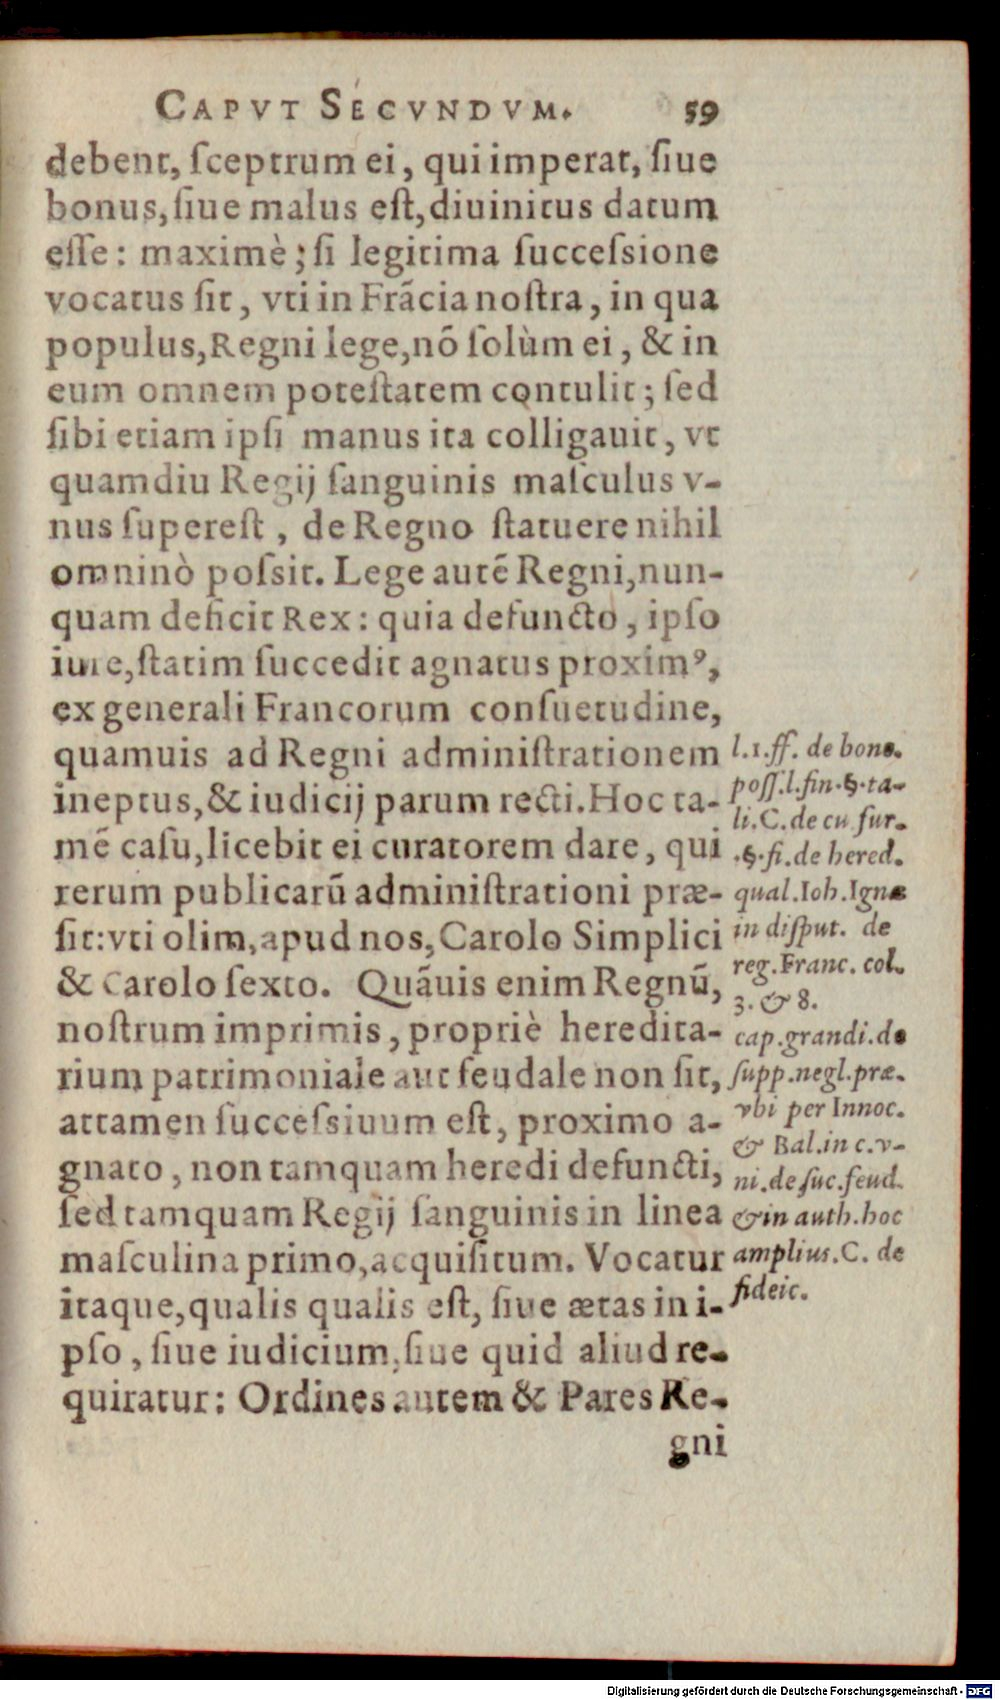 CAPVT SECVNDVM. 59
debent, ſceptrum ei, qui imperat, ſiue
bonus, ſiue malus eſt, diuinitus datum
eſſe: maximè; ſi legitima ſucceſsione
vocatus ſit, vti in Frãcia noſtra, in qua
populus, Regni lege, nõ ſolùm ei, & in
eum omnem poteſtatem contulit; ſed
ſibi etiam ipſi manus ita colligauit, vt
quamdiu Regij ſanguinis maſculus v-
nus ſupereſt, de Regno ſtatuere nihil
omninò poſsit. Lege autẽ Regni, nun-
quam deficit Rex: quia defuncto, ipſo
iure, ſtatim ſuccedit agnatus proximꝰ,
ex generali Francorum conſuetudine,
quamuis ad Regni adminiſtrationem
ineptus, & iudicij parum recti. Hoc ta-
mẽ caſu, licebit ei curatorem dare, qui
rerum publicarũ adminiſtrationi præ-
ſit: vti olim, apud nos, Carolo Simplici
& Carolo ſexto. Quãuis enim Regnũ,
noſtrum imprimis, propriè heredita-
rium patrimoniale aut feudale non ſit,
attamen ſucceſsiuum eſt, proximo a-
gnato, non tamquam heredi defuncti,
ſed tamquam Regij ſanguinis in linea
maſculina primo, acquiſitum. Vocatur
itaque, qualis qualis eſt, ſiue ætas in i-
pſo, ſiue iudicium, ſiue quid aliud re-
quiratur: Ordines autem & Pares Re-
gni
l.1.ff. de bono.
poſſ.l.fin.§.ta-
li.C.de cu fur.
.§.fi.de hered.
qual.Ioh.Igne
in diſput. de
reg.Franc. col.
3. & 8.
cap.grandi.de
ſupp.negl.præ.
vbi per Innoc.
& Bal.in c.v-
ni.de ſuc.feud.
& in auth.hoc
amplius.C. de
fideic.
Digitalisierung gefördert durch die Deutsche Forschungsgemeinschaft - DFG